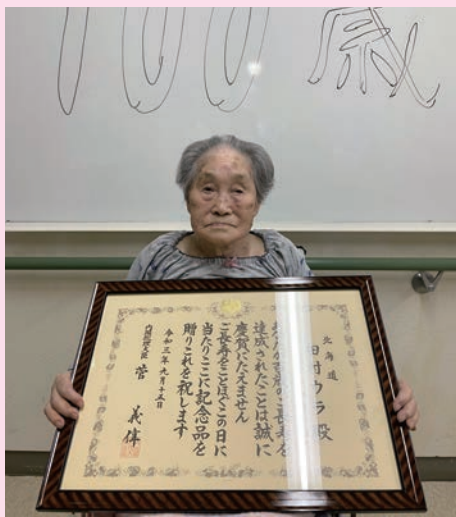 100歳
北海道
田村ウラ殿
ご長寿を
達成されたことは誠に
慶賀にたえません
ご長寿をことほぐこの日に
当たりここに記念品を
贈りこれを祝します
令和三年九月十五日
内閣総理大臣 菅 義偉